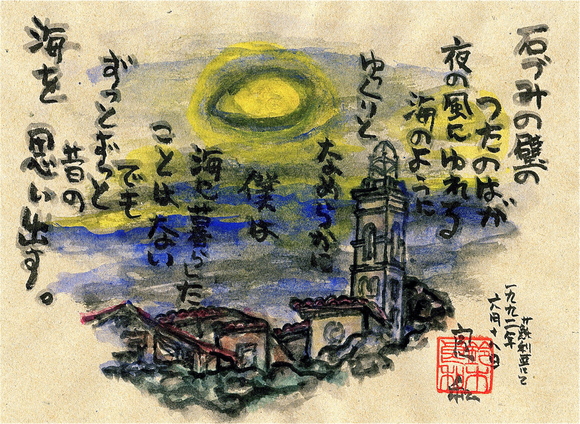 石づみの壁の
つたのはが
夜の風にゆれる
海のように
ゆっくりと
なめらかに
僕は
海に暮らした
ことはない
でも
ずっとずっと
昔の
海を思い出す。
一九九二年
六月十八日